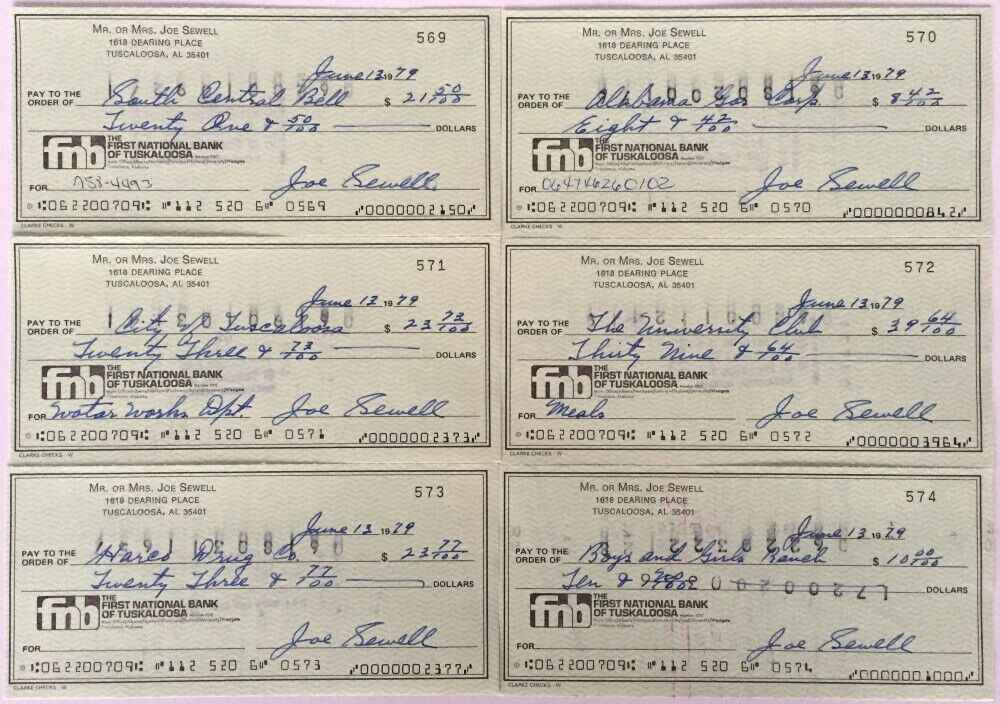 MR. OR MRS. JOE SEWELL
569
1618 DEARING PLACE
TUSCALOOSA, AL 35401
June 13 1979
PAY TO THE ORDER OF South Central Bell $ 21 50/100
Twenty One & 50/100 DOLLARS
fnb THE FIRST NATIONAL BANK OF TUSKALOOSA
FOR 758-4493 Joe Sewell
⑆062200709⑆ ⑈112 520 6⑈ 0569 ⑈0000002150⑈
CLARKE CHECKS W
MR. OR MRS. JOE SEWELL
570
1618 DEARING PLACE
TUSCALOOSA, AL 35401
June 13 1979
PAY TO THE ORDER OF Alabama Gas Corp. $ 8 42/100
Eight & 42/100 DOLLARS
fnb THE FIRST NATIONAL BANK OF TUSKALOOSA
FOR Joe Sewell
⑆062200709⑆ ⑈112 520 6⑈ 0570 ⑈0000000842⑈
CLARKE CHECKS W
MR. OR MRS. JOE SEWELL
571
1618 DEARING PLACE
TUSCALOOSA, AL 35401
June 13 1979
PAY TO THE ORDER OF City of Tuscaloosa $ 23 73/100
Twenty Three & 73/100 DOLLARS
fnb THE FIRST NATIONAL BANK OF TUSKALOOSA
FOR Watar Works Dpt. Joe Sewell
⑆062200709⑆ ⑈112 520 6⑈ 0571 ⑈0000002373⑈
CLARKE CHECKS W
MR. OR MRS. JOE SEWELL
572
1618 DEARING PLACE
TUSCALOOSA, AL 35401
June 13 1979
PAY TO THE ORDER OF The University Club $ 39 64/100
Thirty Nine & 64/100 DOLLARS
fnb THE FIRST NATIONAL BANK OF TUSKALOOSA
FOR Meals Joe Sewell
⑆062200709⑆ ⑈112 520 6⑈ 0572 ⑈0000003964⑈
CLARKE CHECKS W
MR. OR MRS. JOE SEWELL
573
1618 DEARING PLACE
TUSCALOOSA, AL 35401
June 13 1979
PAY TO THE ORDER OF Harco Drug Co. $ 23 77/100
Twenty Three & 77/100 DOLLARS
fnb THE FIRST NATIONAL BANK OF TUSKALOOSA
FOR Joe Sewell
⑆062200709⑆ ⑈112 520 6⑈ 0573 ⑈0000002377⑈
CLARKE CHECKS W
MR. OR MRS. JOE SEWELL
574
1618 DEARING PLACE
TUSCALOOSA, AL 35401
June 13 1979
PAY TO THE ORDER OF Boys and Girls Ranch $ 10 00/100
Ten & 00/100 DOLLARS
fnb THE FIRST NATIONAL BANK OF TUSKALOOSA
FOR Joe Sewell
⑆062200709⑆ ⑈112 520 6⑈ 0574 ⑈0000001000⑈
CLARKE CHECKS W